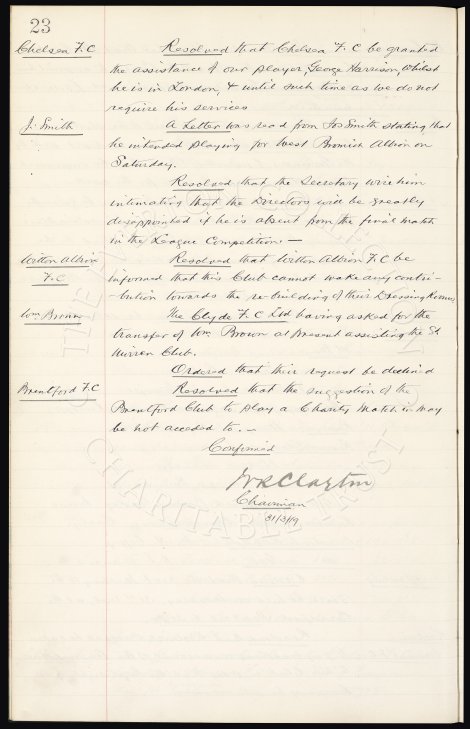 23
Chelsea F.C
Resolved that Chelsea F.C be granted
the assistance of our player, George Harrison, whilst
he is in London, & until such time as we do not
require his services
J. Smith
A Letter was read from Jos Smith stating that
he intended playing for West Bromich Albion on
Saturday.
Resolved that the Secretary wire him
intimating that the Directors will be greatly
disappointed if he is absent from the final match
in the League Competition —
Witton Albion
F.C
Resolved that Witton Albion F.C be
informed that this Club cannot make any contri-
-bution towards the re-building of their Dressing Rooms,
Wm Brown
The Clyde F.C Ltd having asked for the
transfer of Wm Brown at present assisting the St.
Mirren Club.
Ordered that their request be declined
Brentford F.C
Resolved that the suggestion of the
Brentford Club to play a Charity Match in May
be not acceded to. —
Confirmed
W R Clayton
Chairman
31/3/19
CHARITABLE TRUST